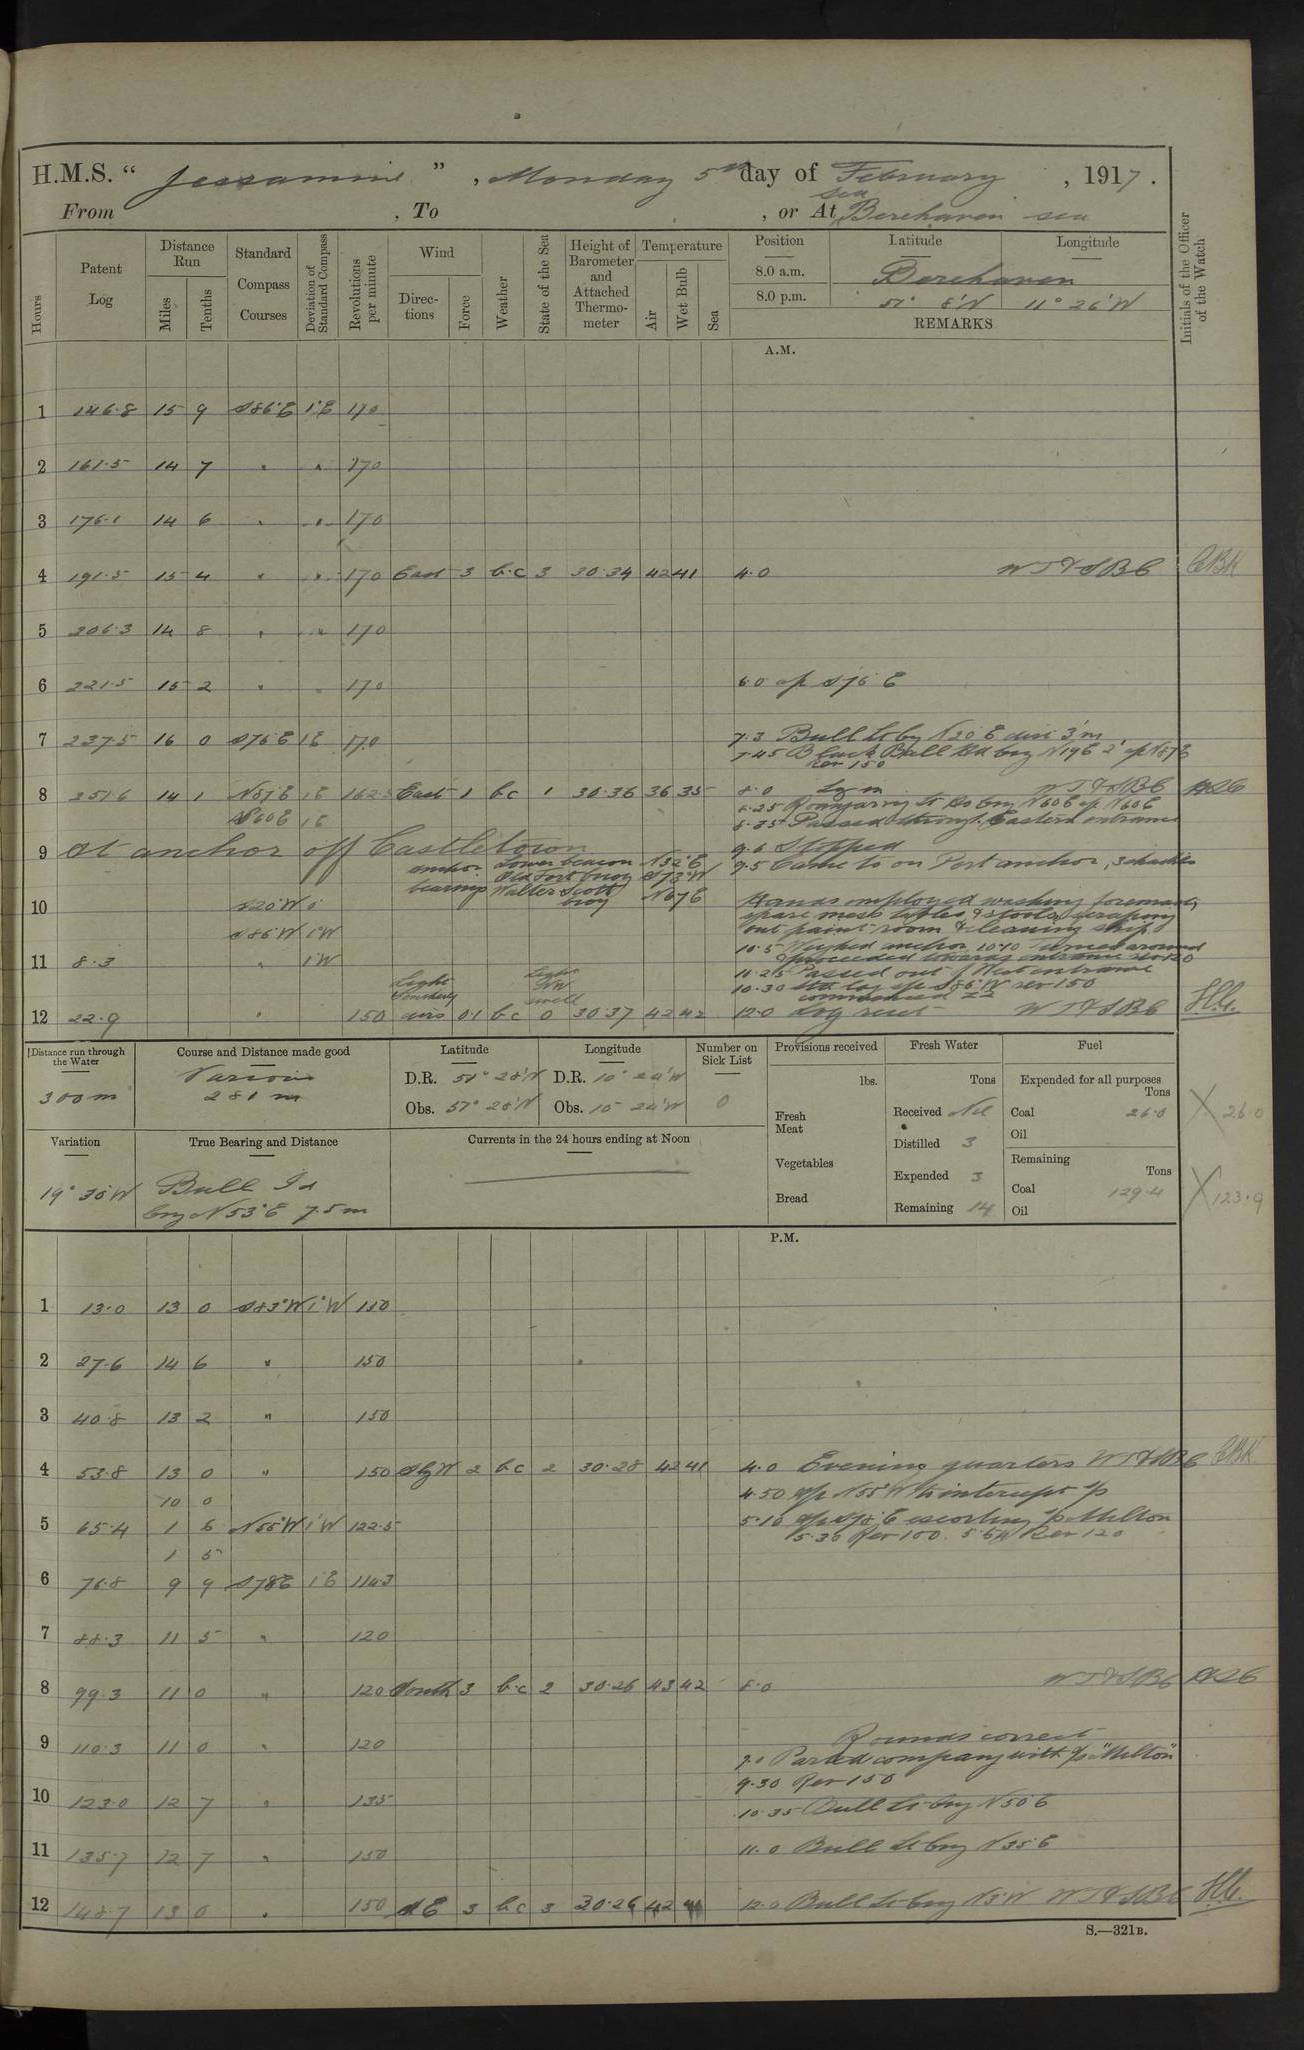 H.M.S. " Jessamine " , Monday 5th day of February , 1917 .
sea
From , To , or At Berehaven sea
Hours
Patent Log
Distance Run
Miles
Tenths
Standard Compass Courses
Deviation of Standard Compass
Revolutions per minute
Wind
Directions
Force
Weather
State of the Sea
Height of Barometer and Attached Thermometer
Temperature
Air
Wet Bulb
Sea
Position
Latitude
Longitude
8.0 a.m. Berehaven
8.0 p.m. 51° 8'N 11° 26'W
REMARKS
Initials of the Officer of the Watch
A.M.
1 146.8 15 9 S86°E 1°E 170
2 161.5 14 7 " " 170
3 176.1 14 6 " " 170
4 191.5 15 4 " " 170 East 3 b.c 3 30.34 42 41 4.0 W T & S B C
5 206.3 14 8 " " 170
6 221.5 15 2 " " 170 6.0 a/c S76 E
7 237.5 16 0 S76E 1E 170 7.3 Bull Lt brg N20 E dist 3'm
7.45 Black Ball Hd brg N19E 2' a/c N87E
Rev 150
8 251.6 14 1 N87E 1E 162.5 East 1 b.c 1 30.36 36 35 8.0 W T & S B C
S60E 1E
8.25 Roancarrig Lt Ho brg N60E a/c N60E
8.35 Passed through Eastern entrance
9 At anchor off Castletown 9.6 Stopped
anchor bearings Lower beacon N32°E
Old Fort buoy S73°W
Walter Scott buoy N67E
9.5 Came to on Port anchor, 3 shackles
10 S20°W Hands employed washing foremast,
spare mess tables & stools, scraping
out paint room & cleaning ship.
S86°W 1°W
10.5 Weighed anchor 10.10 Turned around
& proceeded towards entrance rev 120
11 8.3 " 1°W 10.25 Passed out of West entrance
10.30 Sta log a/c S86°W rev 150
commenced ZZ
12 22.9 " 150 Light Southerly airs 0.1 b.c 0 30.37 42 42 12.0 Log reset W T & S B C
Light SW swell
Distance run through the Water
300 m
Course and Distance made good
Various
281 m
Latitude
D.R. 51° 28'N
Obs. 51° 28'N
Longitude
D.R. 10° 24'W
Obs. 10 24'W
Number on Sick List
0
Provisions received
lbs.
Fresh Meat
Vegetables
Bread
Fresh Water
Tons
Received Nil
Distilled 3
Expended 3
Remaining 14
Fuel
Expended for all purposes
Tons
Coal 26.0
Oil
Remaining
Tons
Coal 129.4
Oil
X 26.0
X 123.9
Variation
19° 30'W
True Bearing and Distance
Bull Id
brg N53°E 7.5 m
Currents in the 24 hours ending at Noon
P.M.
1 13.0 13 0 S83°W 1°W 150
2 27.6 14 6 " 150
3 40.8 13 2 " 150
4 53.8 13 0 " 150 SbyW 2 b.c 2 30.28 42 41 4.0 Evening quarters W T & S B C
10 0 4.50 a/c N55°W to intercept s/s
5 65.4 1 6 N55°W 1°W 122.5 5.10 a/c S78°E escorting s/s Milton
5.30 Rev 100. 5.54 Rev 120
1 5
6 76.8 9 9 S78E 1E 114.3
7 88.3 11 5 " 120
8 99.3 11 0 " 120 South 3 b.c 2 30.26 43 42 8.0 W T & S B C
9 110.3 11 0 " 120 Rounds correct
9.1 Parted company with s/s "Milton"
9.30 Rev 150
10 123.0 12 7 " 135 10.35 Bull Lt brg N50E
11 135.7 12 7 " 150 11.0 Bull Lt brg N35E
12 148.7 13 0 " 150 SE 3 b.c 3 30.26 42 41 12.0 Bull Lt brg N3°W W T & S B C
S.—321B.